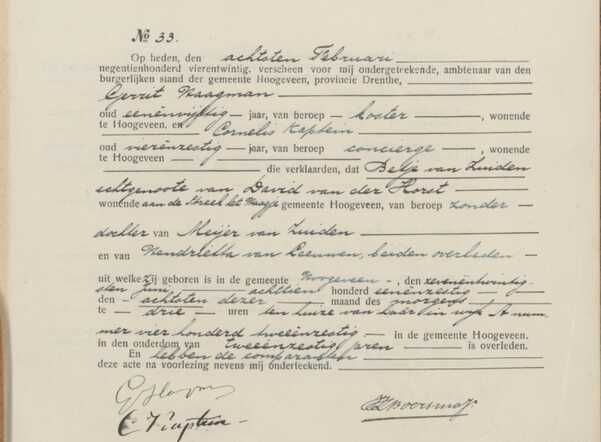 № 33.
Op heden, den achtsten Februari
negentienhonderd vierentwintig, verscheen voor mij ondergeteekende, ambtenaar van den
burgerlijken stand der gemeente Hoogeveen, provincie Drenthe,
Gerrit Haagman
oud eenënvijftig jaar, van beroep koster, wonende
te Hoogeveen, en Cornelis Kaptein
oud vierënzestig jaar, van beroep concierge, wonende
te Hoogeveen
die verklaarden, dat Betje van Zuiden
echtgenoote van David van der Horst
wonende aan de Streek het Haagje gemeente Hoogeveen, van beroep zonder
dochter van Meijer van Zuiden
en van Hendriëtta van Leeuwen, beiden overleden
uit welke zij geboren is in de gemeente Hoogeveen, den zevenëntwintig-
sten Juni achttien honderd eenënzestig
den achtsten dezer maand des morgens
te drie uren ten huize van haar in wijk A num-
mer vier honderd tweeënzestig In de gemeente Hoogeveen.
in den ouderdom van tweeënzestig jaren is overleden.
En hebben de comparanten
deze acte na voorlezing nevens mij onderteekend.
C Kaptein
Boersma